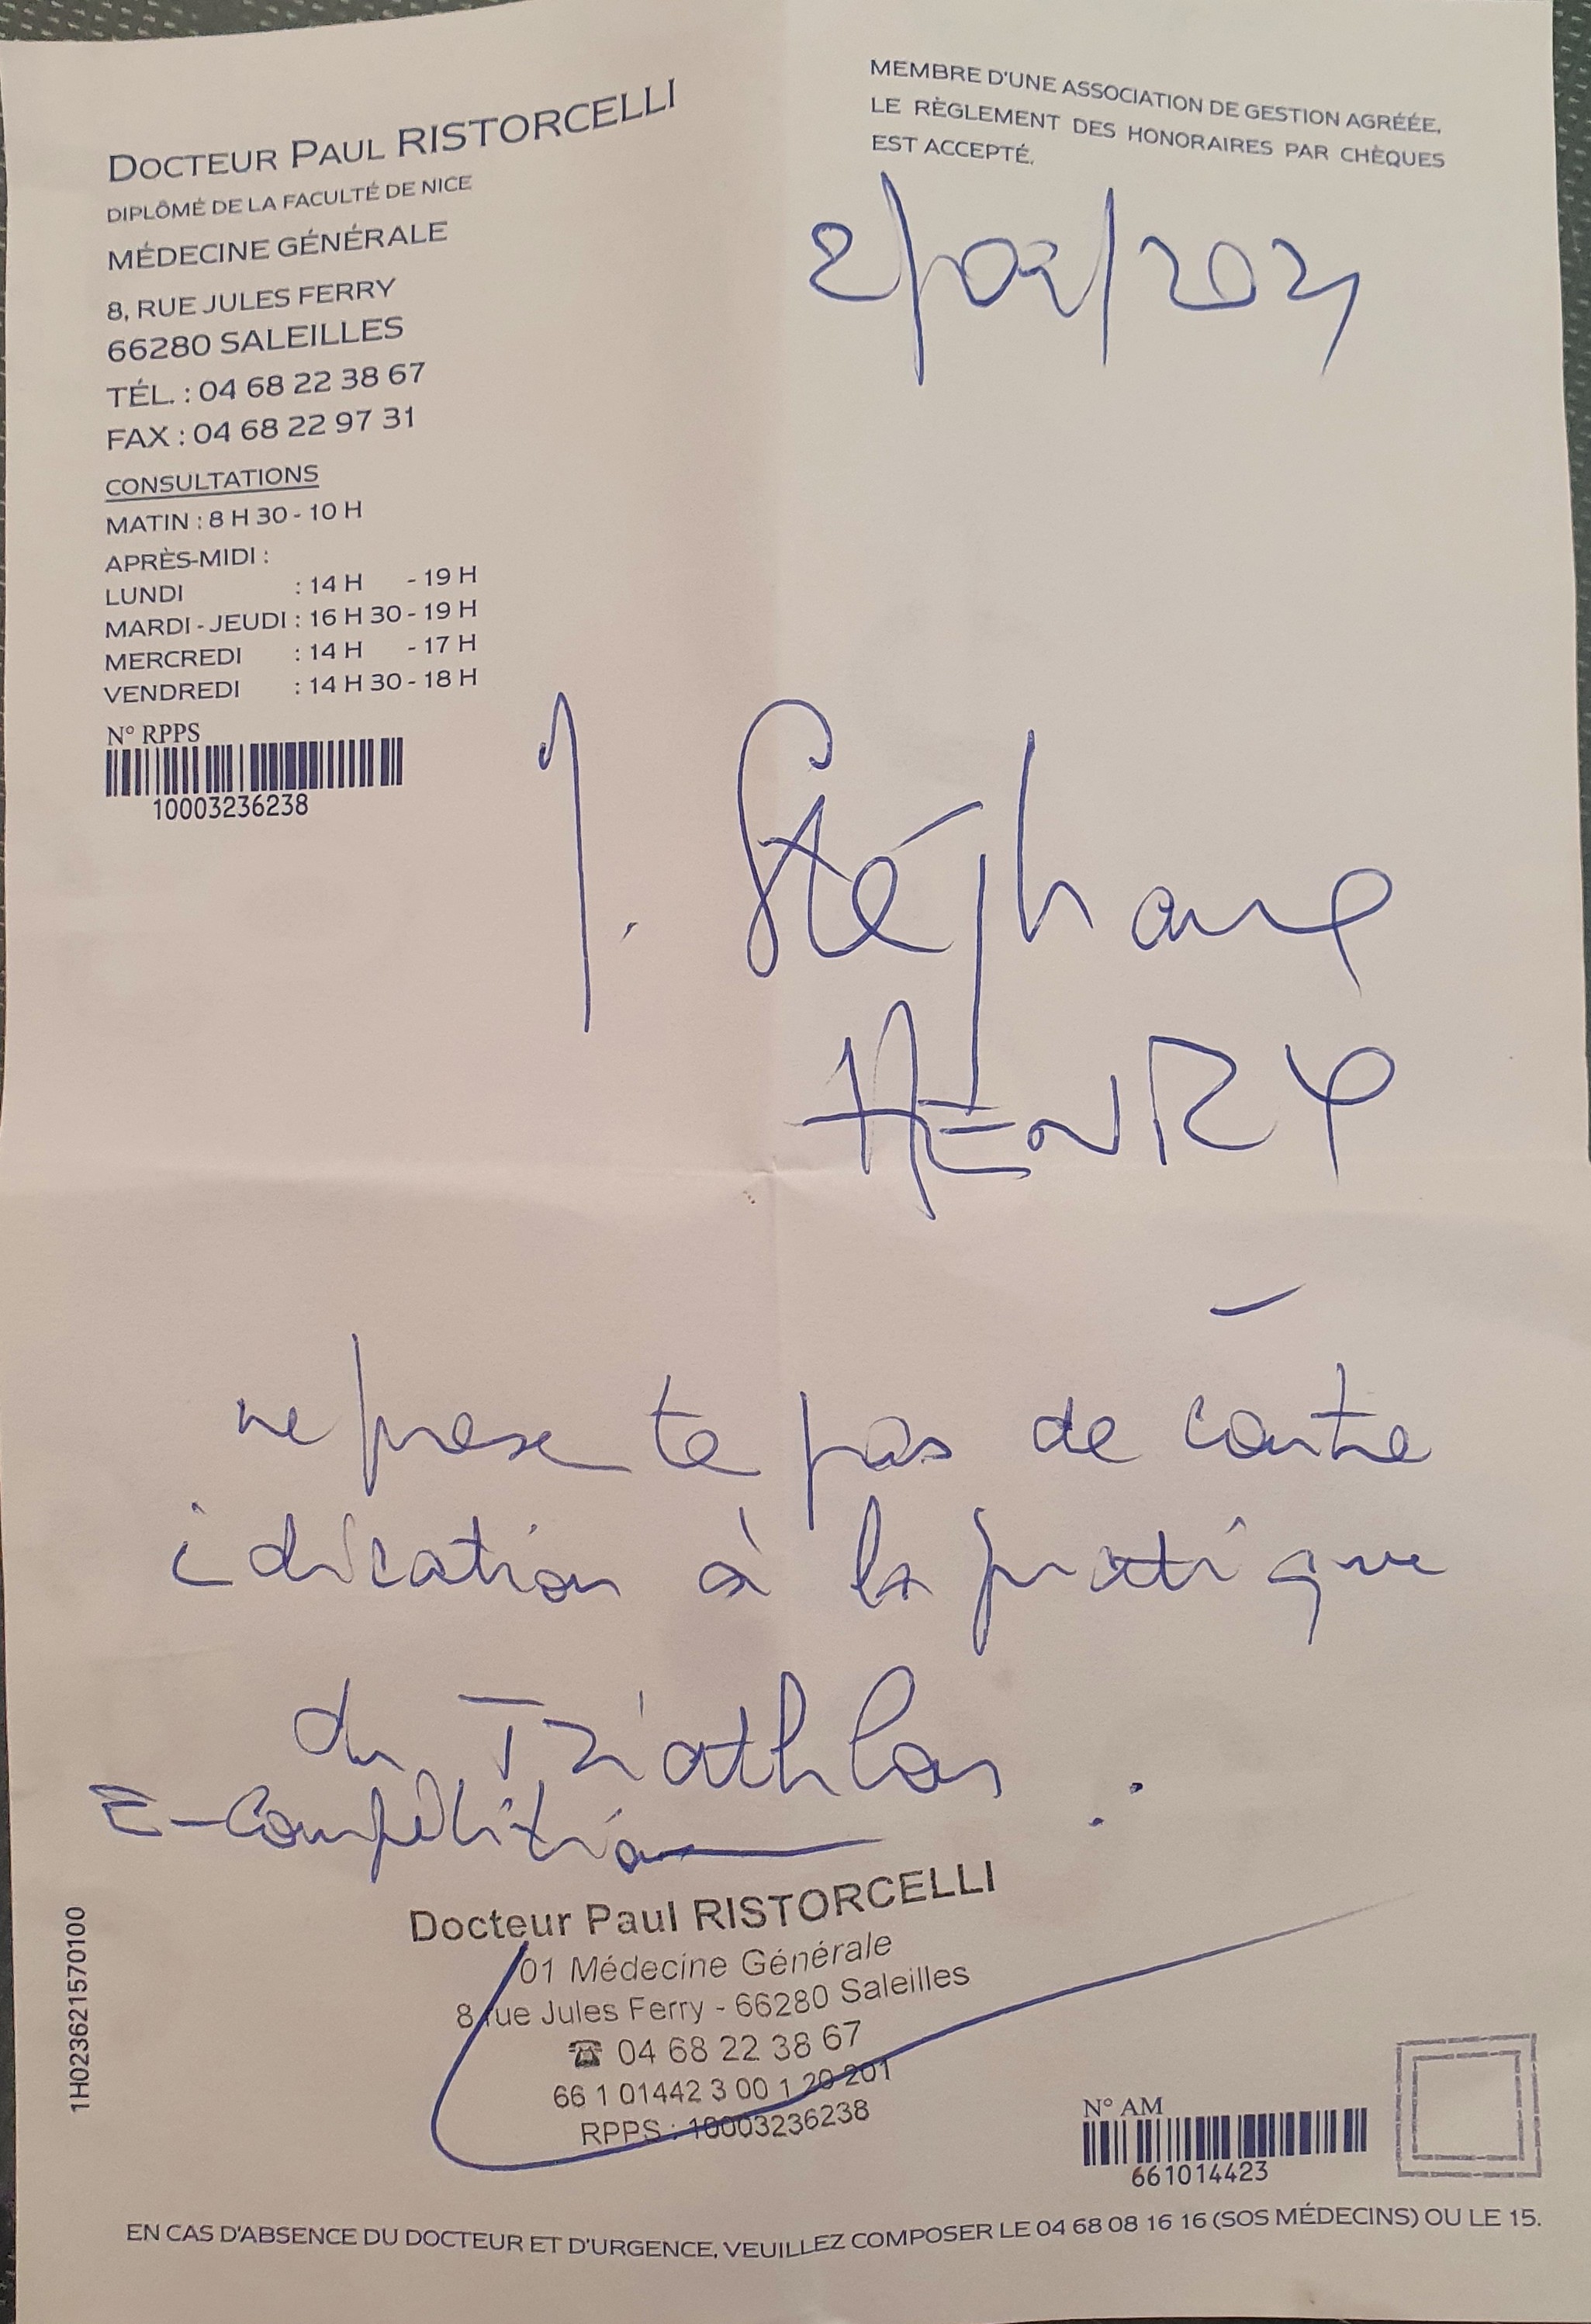 DOCTEUR PAUL RISTORCELLI
DIPLÔMÉ DE LA FACULTÉ DE NICE
MÉDECINE GÉNÉRALE
8, RUE JULES FERRY
66280 SALEILLES
TÉL. : 04 68 22 38 67
FAX : 04 68 22 97 31
CONSULTATIONS
MATIN : 8 H 30 - 10 H
APRÈS-MIDI :
LUNDI : 14 H - 19 H
MARDI - JEUDI : 16 H 30 - 19 H
MERCREDI : 14 H - 17 H
VENDREDI : 14 H 30 - 18 H
N° RPPS
10003236238
MEMBRE D'UNE ASSOCIATION DE GESTION AGRÉÉE,
LE RÈGLEMENT DES HONORAIRES PAR CHÈQUES
EST ACCEPTÉ.
2/02/2021
Stéphane
HENRY
ne presente pas de contre
idication à la pratique
du Triathlon
E-Compétition
Docteur Paul RISTORCELLI
01 Médecine Générale
8 rue Jules Ferry - 66280 Saleilles
☎ 04 68 22 38 67
66 1 01442 3 00 1 20 201
RPPS : 10003236238
1H02362157 0100
N° AM
661014423
EN CAS D'ABSENCE DU DOCTEUR ET D'URGENCE, VEUILLEZ COMPOSER LE 04 68 08 16 16 (SOS MÉDECINS) OU LE 15.